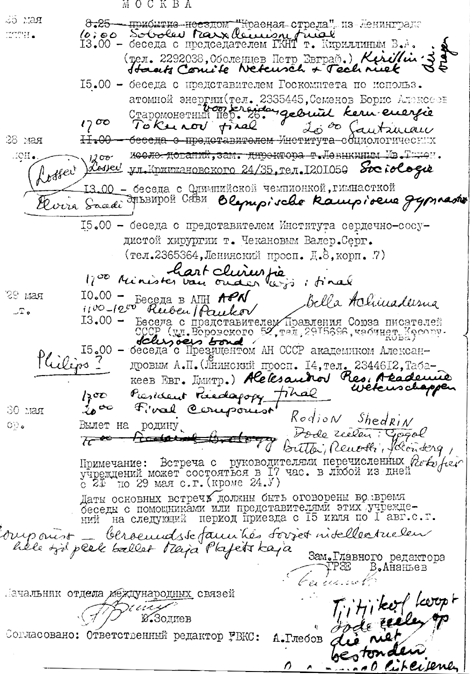 МОСКВА
26 мая 8.25 - прибытие поездом "Красная стрела" из Ленинграда
10:00 Sobolev Marx Leninism final
13.00 - беседа с председателем ГКНТ т. Кириллиным В.А.
(тел. 2292038, Оболенцев Петр Евграф.) Kirillin
Staats Comité Wetensch + Techniek
15.00 - беседа с представителем Госкомитета по использ.
атомной энергии(тел. 2335445, Семенов Борис Алексеев
Старомонетный пер. 26. gebruik kernenergie
17.00 Tokunov final 20.00 Gautzman
28 мая 11.00 - беседа с представителем Института социологических
Lossev Lossev
ул.Кржижановского 24/35, тел.1201050 Sociologie
13.00 - беседа с Олимпийской чемпионкой, гимнасткой
Эльвирой Саади Olympische kampioene gymnastiek
Elvira Saadi
15.00 - беседа с представителем Института сердечно-сосу-
дистой хирургии т. Чекановым Валер.Серг.
(тел.2365364, Ленинский просп. Д.8, корп. 7)
hart chirurgie
17.00 Minister van onderwijs : final
29 мая 10.00 - Беседа в АПН APN Bella Achmadulina
11:00-12:00 Ruben/Pankov
13.00 - Беседа с представителем Правления Союза писателей
СССР (ул.Воровского 52, тел.2915696, кабинет
Schrijvers bond.
Philips?
15.00 - беседа с Президентом АН СССР академиком Алексан-
дровым А.П.(Ленинский просп. 14, тел. 2344612, Таба-
кеев Евг. Дмитр.) Aleksandrov Pres. Akademie wetenschappen
17.00 President Paedagogy final
20.00 Final Componist
30 мая Вылет на родину.
Rodion Shedrin
Dode zielen: Gogol
Britten, Menotti, Schönberg, Prokofiev
Примечание: Встреча с руководителями перечисленных
учреждений может состояться в 17 час. в любой из дней
с 21 по 29 мая с.г.(кроме 24.У)
Даты основных встреч должны быть оговорены во время
беседы с помощниками или представителями этих учрежде-
ний на следующий период приезда с 15 июля по 1 авг.с.г.
Componist - beroemdste families Sovjet intellectuelen
hele tijd plek ballet Maja Plisjetskaja
Зам.Главного редактора
ГРЗЕ В.Ананьев
Начальник отдела международных связей
Ю.Зодиев
Согласовано: Ответственный редактор РВКС: А.Глебов
Tjitjikof koopt
dode zielen op
die niet
bestonden